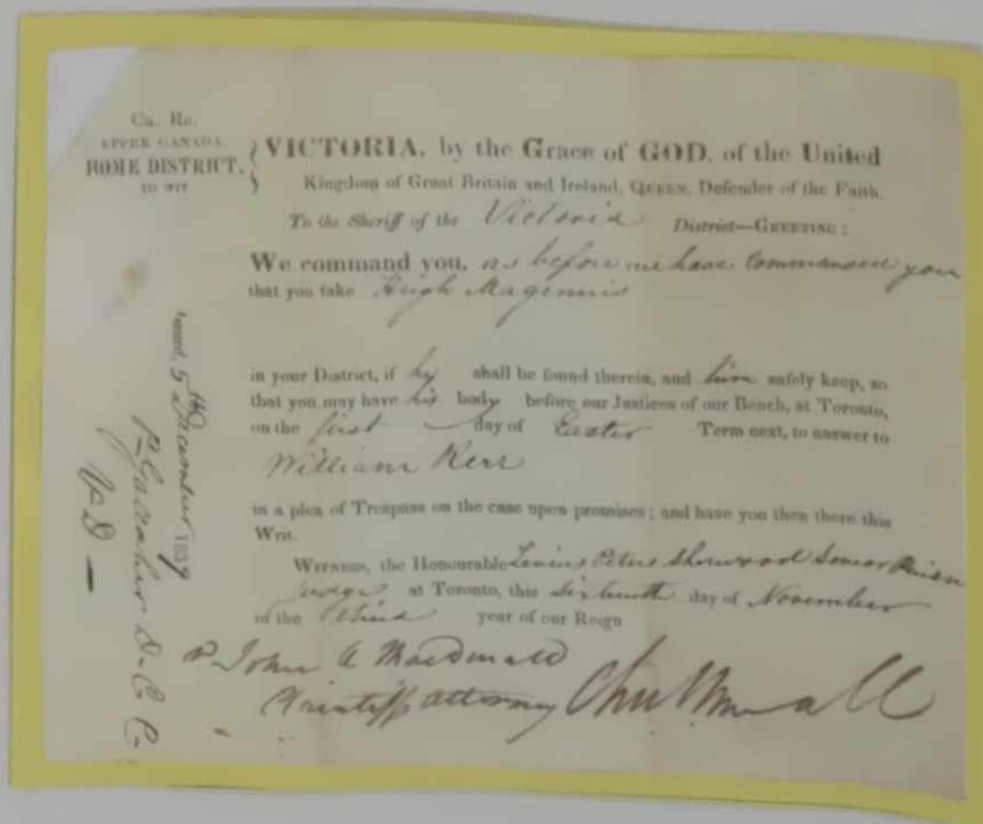 Ca. Re.
UPPER CANADA.
HOME DISTRICT,
TO WIT
VICTORIA, by the Grace of GOD, of the United
Kingdom of Great Britain and Ireland, QUEEN, Defender of the Faith.
To the Sheriff of the Victoria District—GREETING:
We command you, as before we have Commanded you
that you take Hugh Magennis
in your District, if he shall be found therein, and him safely keep, so
that you may have his body before our Justices of our Bench, at Toronto,
on the first day of Easter Term next, to answer to
William Kerr
in a plea of Trespass on the case upon promises; and have you then there this
Writ.
WITNESS, the Honourable Levius Peters Sherwood Senior Puisne
Judge at Toronto, this Sixteenth day of November
in the third year of our Reign
P John A MacDonald
Plaintiffs Attorney
Issued, 5th December 1839
P Gallagher D.C.C.
V D —